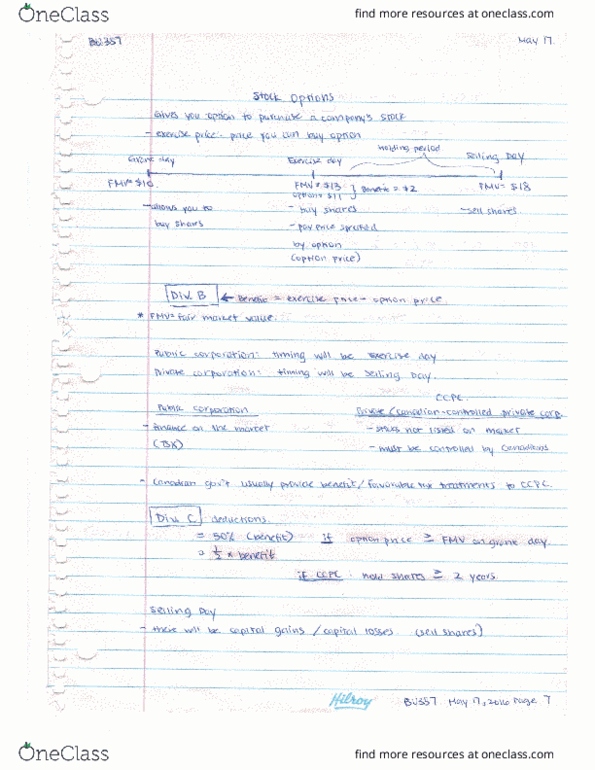 OneClass
find more resources at oneclass.com
BU357
May 17.
Stock Options
Gives you option to purchase a company's stock
- exercise price: price you can buy option
Holding period
Grant day Exercise day Selling Day
FMV= $10 FMV = $13 } Benefit = $2 FMV= $18
option= $11
- allows you to - buy shares - sell shares
buy shares - pay price specified
by option
(option price)
Div. B ← Benefit = exercise price - option price.
* FMV= fair market value.
Public corporation: timing will be exercise day
Private corporation: timing will be selling Day.
CCPC
Public corporation Private (Canadian-controlled private corp.
- finance on the market - stocks not listed on market
(TSX) - must be controlled by Canadians
- Canadian gov't usually provide benefit/favorable tax treatments to CCPC.
Div. C deductions.
= 50% (benefit) if option price ≥ FMV on grant day.
= ½ x benefit
if CCPC: hold shares ≥ 2 years
Selling Day
- there will be capital gains / capital losses (sell shares)
Hilroy
BU357 May 17, 2016 Page 7
OneClass
find more resources at oneclass.com